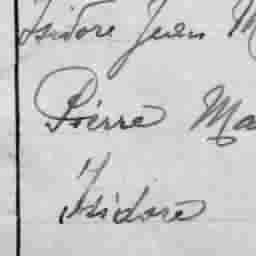 Isidore Jean M
Pierre Ma
"
Isidore